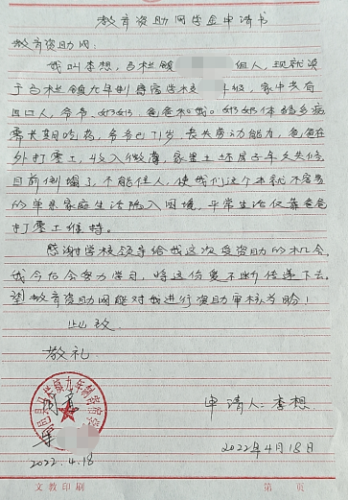 教育资助网学金申请书
教育资助网:
我叫李想,马栏镇 组人,现就读
于马栏镇九年制寄宿学校 年级,家中共有
四口人,爷爷、奶奶、爸爸和我。奶奶体弱多病
需长期吃药,爷爷也71岁,丧失劳动能力,爸爸在
外打零工,收入微薄,家里土坯房年久失修,
目前倒塌了,不能住人,使我们这个本就不富裕
的单亲家庭生活陷入困境,平常生活仅靠爸爸
打零工维持。
感谢学校领导给我这次受资助的机会,
我今后会努力学习,将这份爱不断传递下去。
望教育资助网能对我进行资助审核为盼!
此致
敬礼
马栏镇九年制寄宿学
申请人:李想
2022年4月18日
2022.4.18
文教印刷 第 页